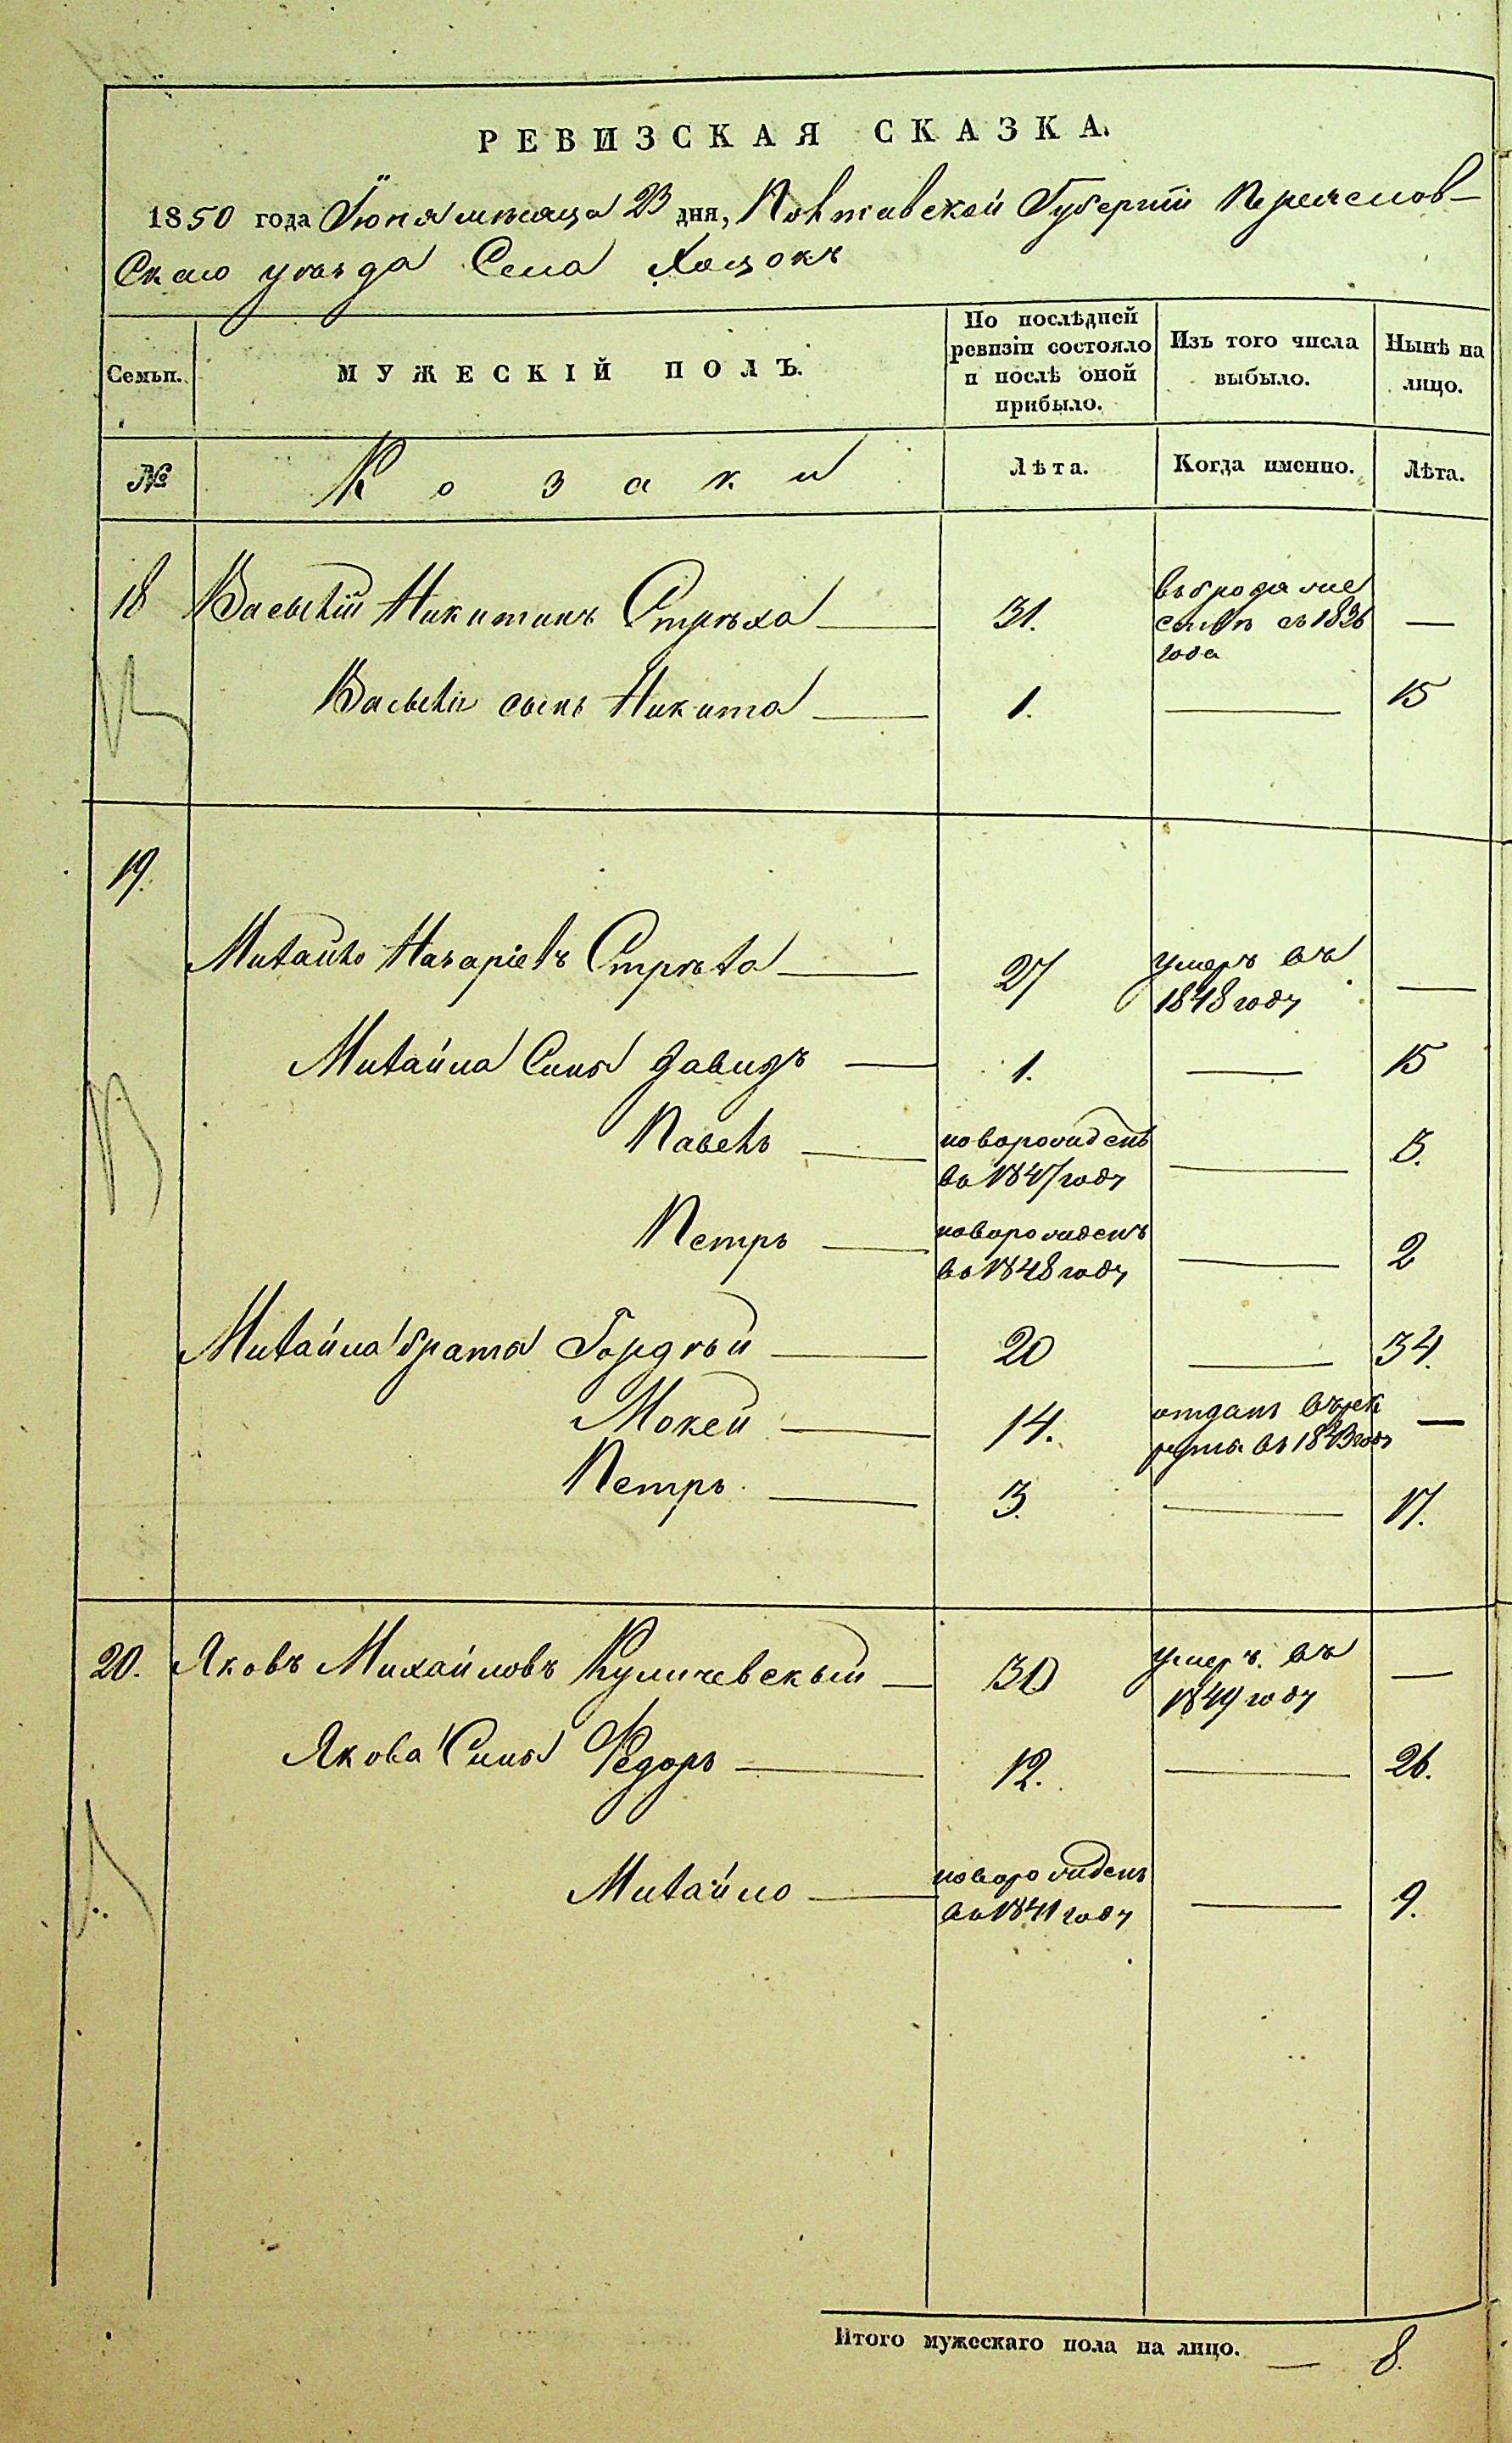 РЕВИЗСКАЯ СКАЗКА.
1850 года Іюня мѣсяца 23 дня, Полтавской Губерніи Переяслов-
скаго уѣзда Села Хоцокъ
Семьи. МУЖЕСКІЙ ПОЛЪ. По послѣдней ревизіи состояло и послѣ оной прибыло. Изъ того числа выбыло. Нынѣ на лицо.
№ Козаки Лѣта. Когда именно. Лѣта.
18 Василій Никитинъ Стрѣха — 31. въ бродяжествѣ съ 1836 года —
Василія сынъ Никита — 1. — 15
19.
Михайло Назаріевъ Стрѣха — 27 умеръ въ 1848 году —
Михайла Сыны Давидъ — 1. — 15
Павелъ — новорожденъ въ 1847 году — 3.
Петръ — новорожденъ въ 1848 году — 2
Михайла братья Гордѣй — 20 — 34.
Мокей — 14. отданъ въ рекруты въ 1843 году —
Петръ — 3. — 17.
20. Яковъ Михайловъ Куличевскый — 30 умеръ въ 1849 году —
Якова Сыны Федоръ — 12. — 26.
Михайло — новорожденъ въ 1841 году — 9.
Итого мужескаго пола на лицо. — 8.